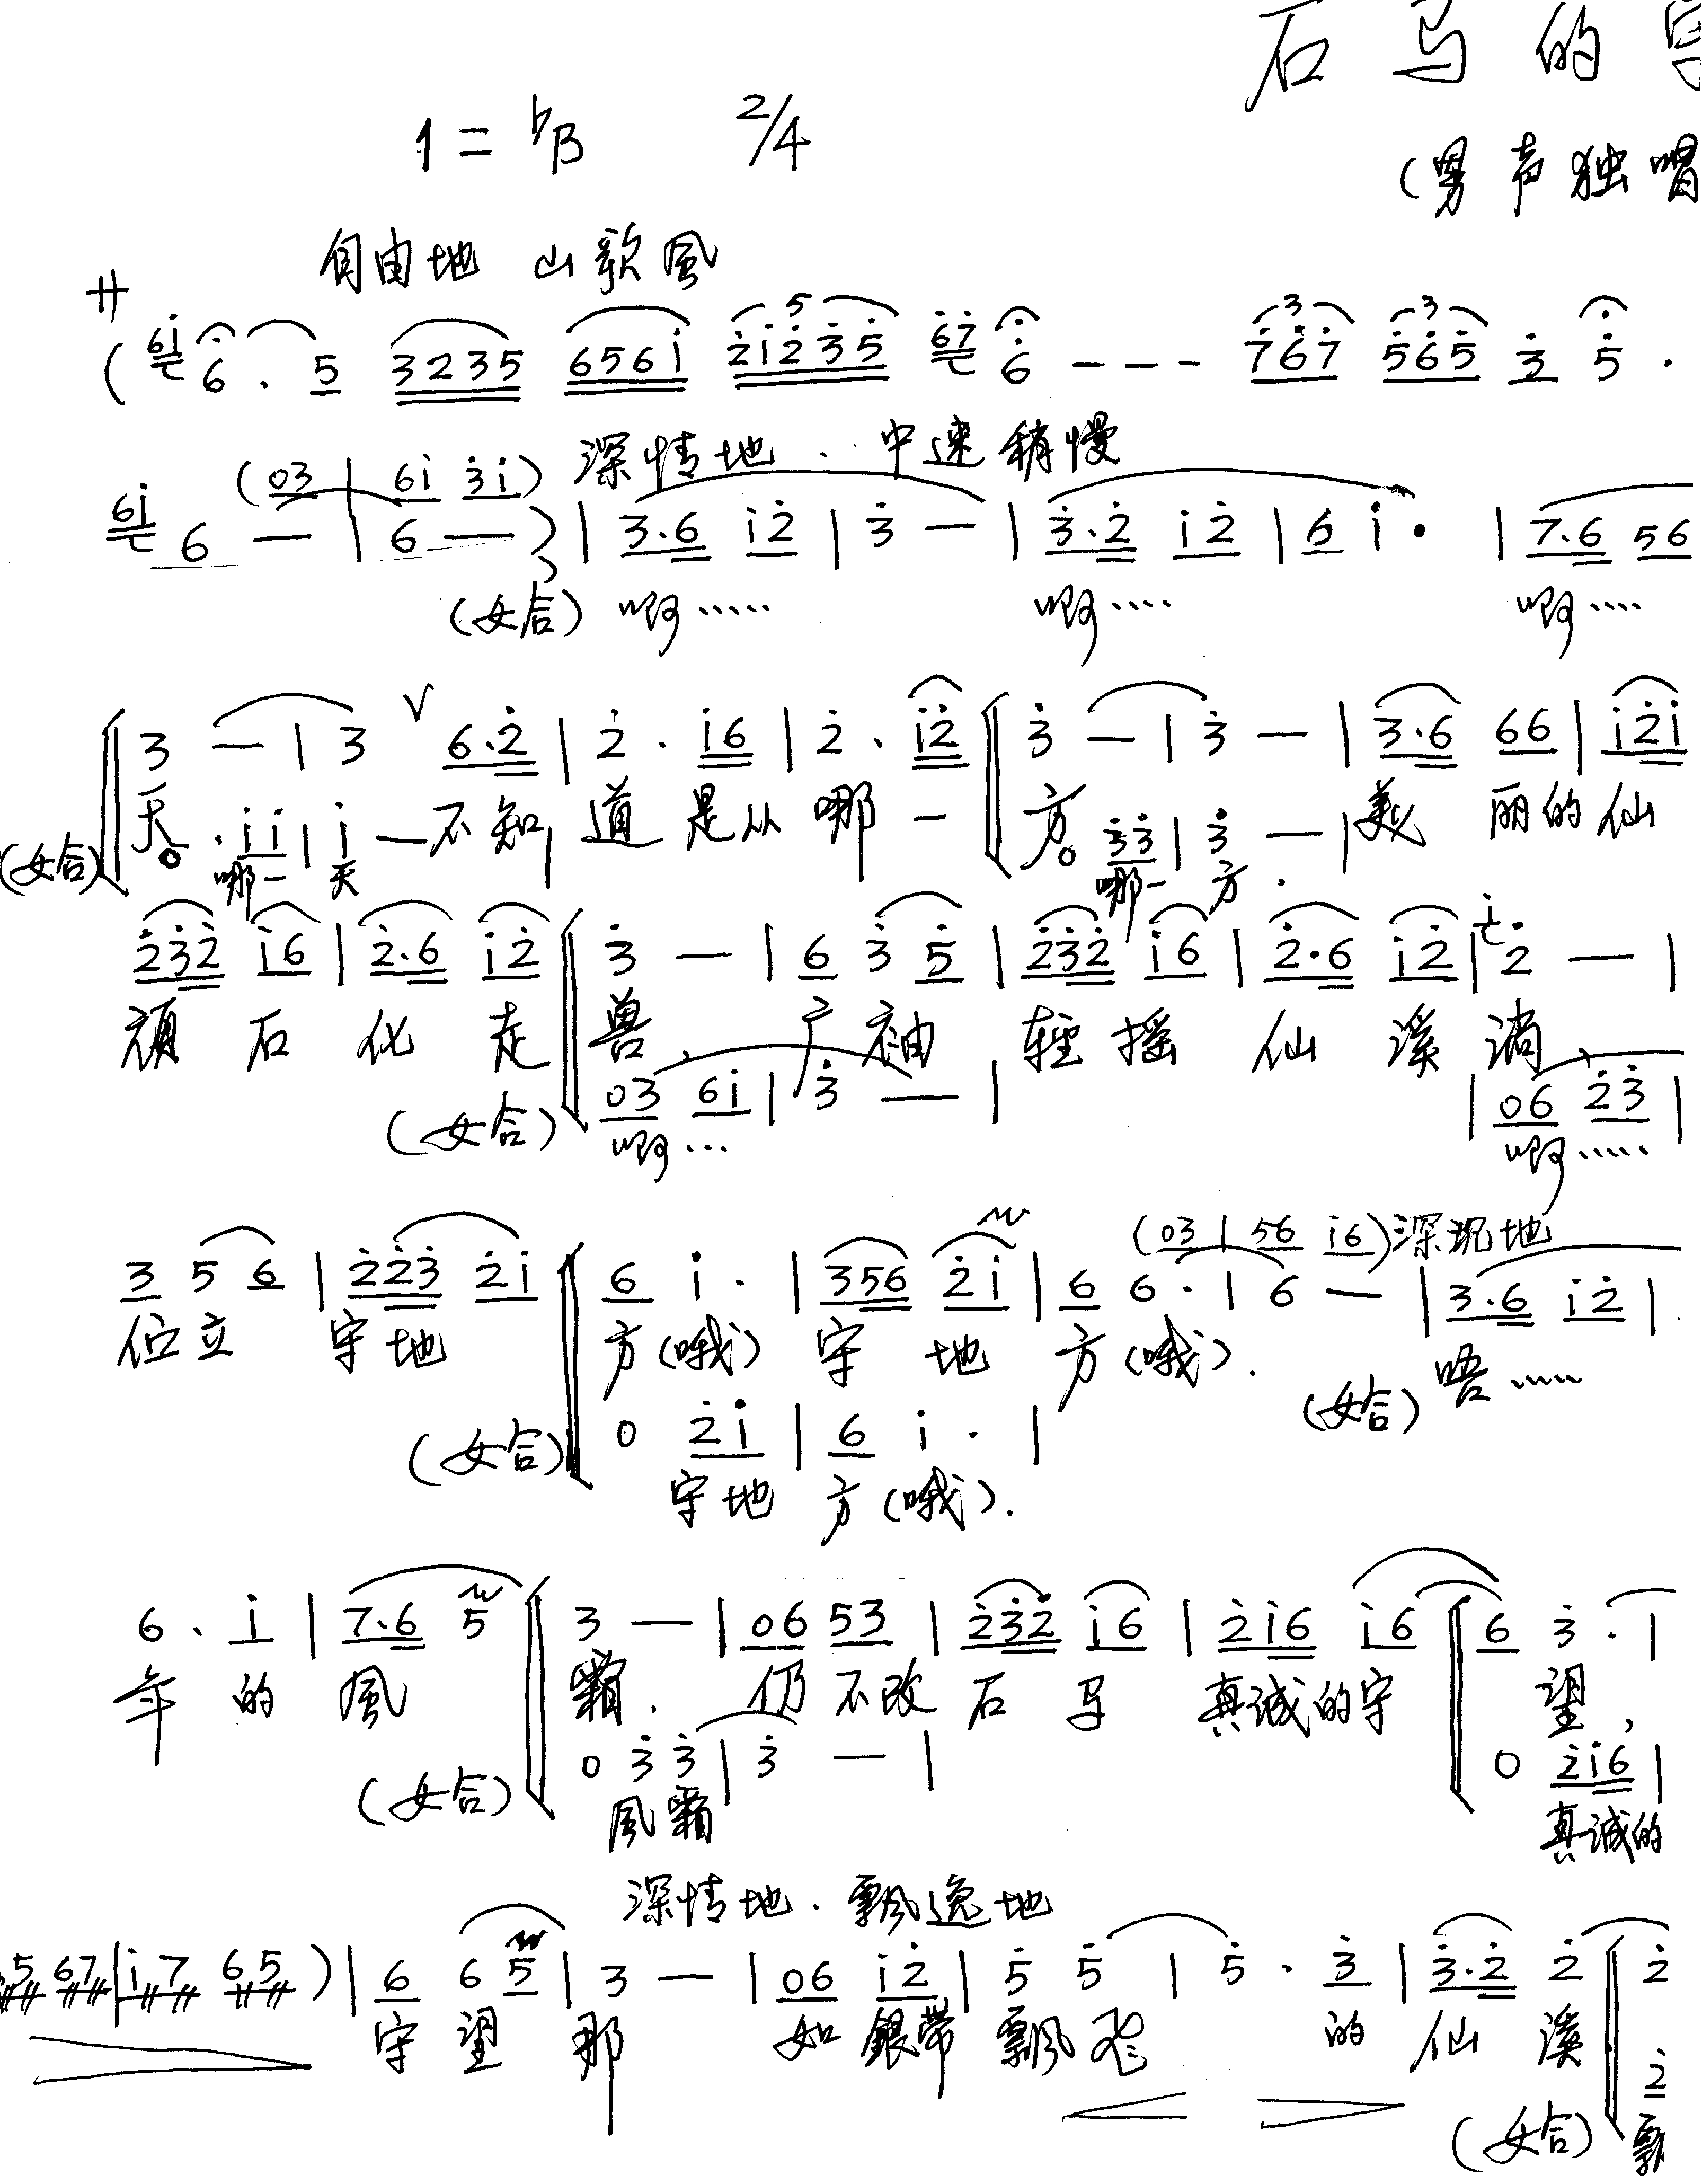 石马的
1=♭B 2/4
(男声独唱
自由地 山歌風
サ
(6i 6. 5 3235 656i 2i235 67 6 --- 767 565 3 5.
(03 | 6i 3i) 深情地.中速稍慢
6i 6 — | 6 — ) | 3.6 i2 | 3 — | 3.2 i2 | 6 i. | 7.6 56
(女合) 啊····· 啊···· 啊····
3 — | 3 √ 6.2 | 2. i6 | 2. i2 | 3 — | 3 — | 3.6 66 | i2i
天。 不知道是从哪一方。 美丽的仙
(女合) . ii | i — | 33 | 3 — |
哪一天 哪一方.
232 i6 | 2.6 i2 | 3 — | 6 3 5 | 232 i6 | 2.6 i2 | i 2 — |
顽石化走兽, 广袖轻摇仙溪淌、
(女合) 03 6i | 3 — | | 06 23 |
啊··· 啊·····
(03 | 56 i6) 深沉地
3 5 6 | 223 2i | 6 i. | 356 2i | 6 6. | 6 — | 3.6 i2 |
伫立守地方(哦)守地方(哦).
(女合) 唔·····
(女合) 0 2i | 6 i. |
守地方(哦).
6. i | 7.6 5 | 3 — | 06 53 | 232 i6 | 2i6 i6 | 6 3. |
年的風霜. 仍不改石马真诚的守望,
(女合) 0 3 3 | 3 — | 0 2i6 |
風霜 真诚的
深情地.飄逸地
5 67 | i 7 65 ) | 6 6 5 | 3 — | 06 i2 | 5 5 | 5. 3 | 3.2 2 | 2
守望那 如銀带飄飞 的仙溪
2
(女合) 飄